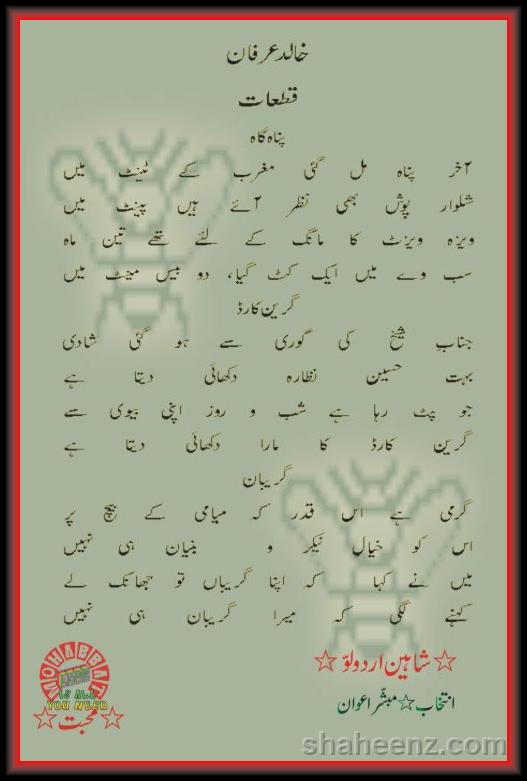 خالد عرفان
قطعات
پناہ گاہ
آخر پناہ مل گئی مغرب کے ٹینٹ میں
شلوار پوش بھی نظر آئے ہیں پینٹ میں
ویزہ ویزٹ کا مانگ کے لئے تھے تین ماہ
سب وے میں ایک کٹ گیا، دو بیس مینٹ میں
گرین کارڈ
جنابِ شیخ کی گوری سے ہو گئی شادی
بہت حسین نظارہ دکھائی دیتا ہے
جو پٹ رہا ہے شب و روز اپنی بیوی سے
گرین کارڈ کا مارا دکھائی دیتا ہے
گریبان
گرمی ہے اس قدر کہ میامی کے بیچ پر
اس کو خیالِ نیکر و بنیان ہی نہیں
میں نے کہا کہ اپنا گریباں تو جھانک لے
کہنے لگی کہ میرا گریبان ہی نہیں
☆شاہین اردو لوّ☆
انتخاب☆مبشّر اعوان
MOHABBAT
IS ALL
YOU NEED
☆محبت☆
shaheenz.com